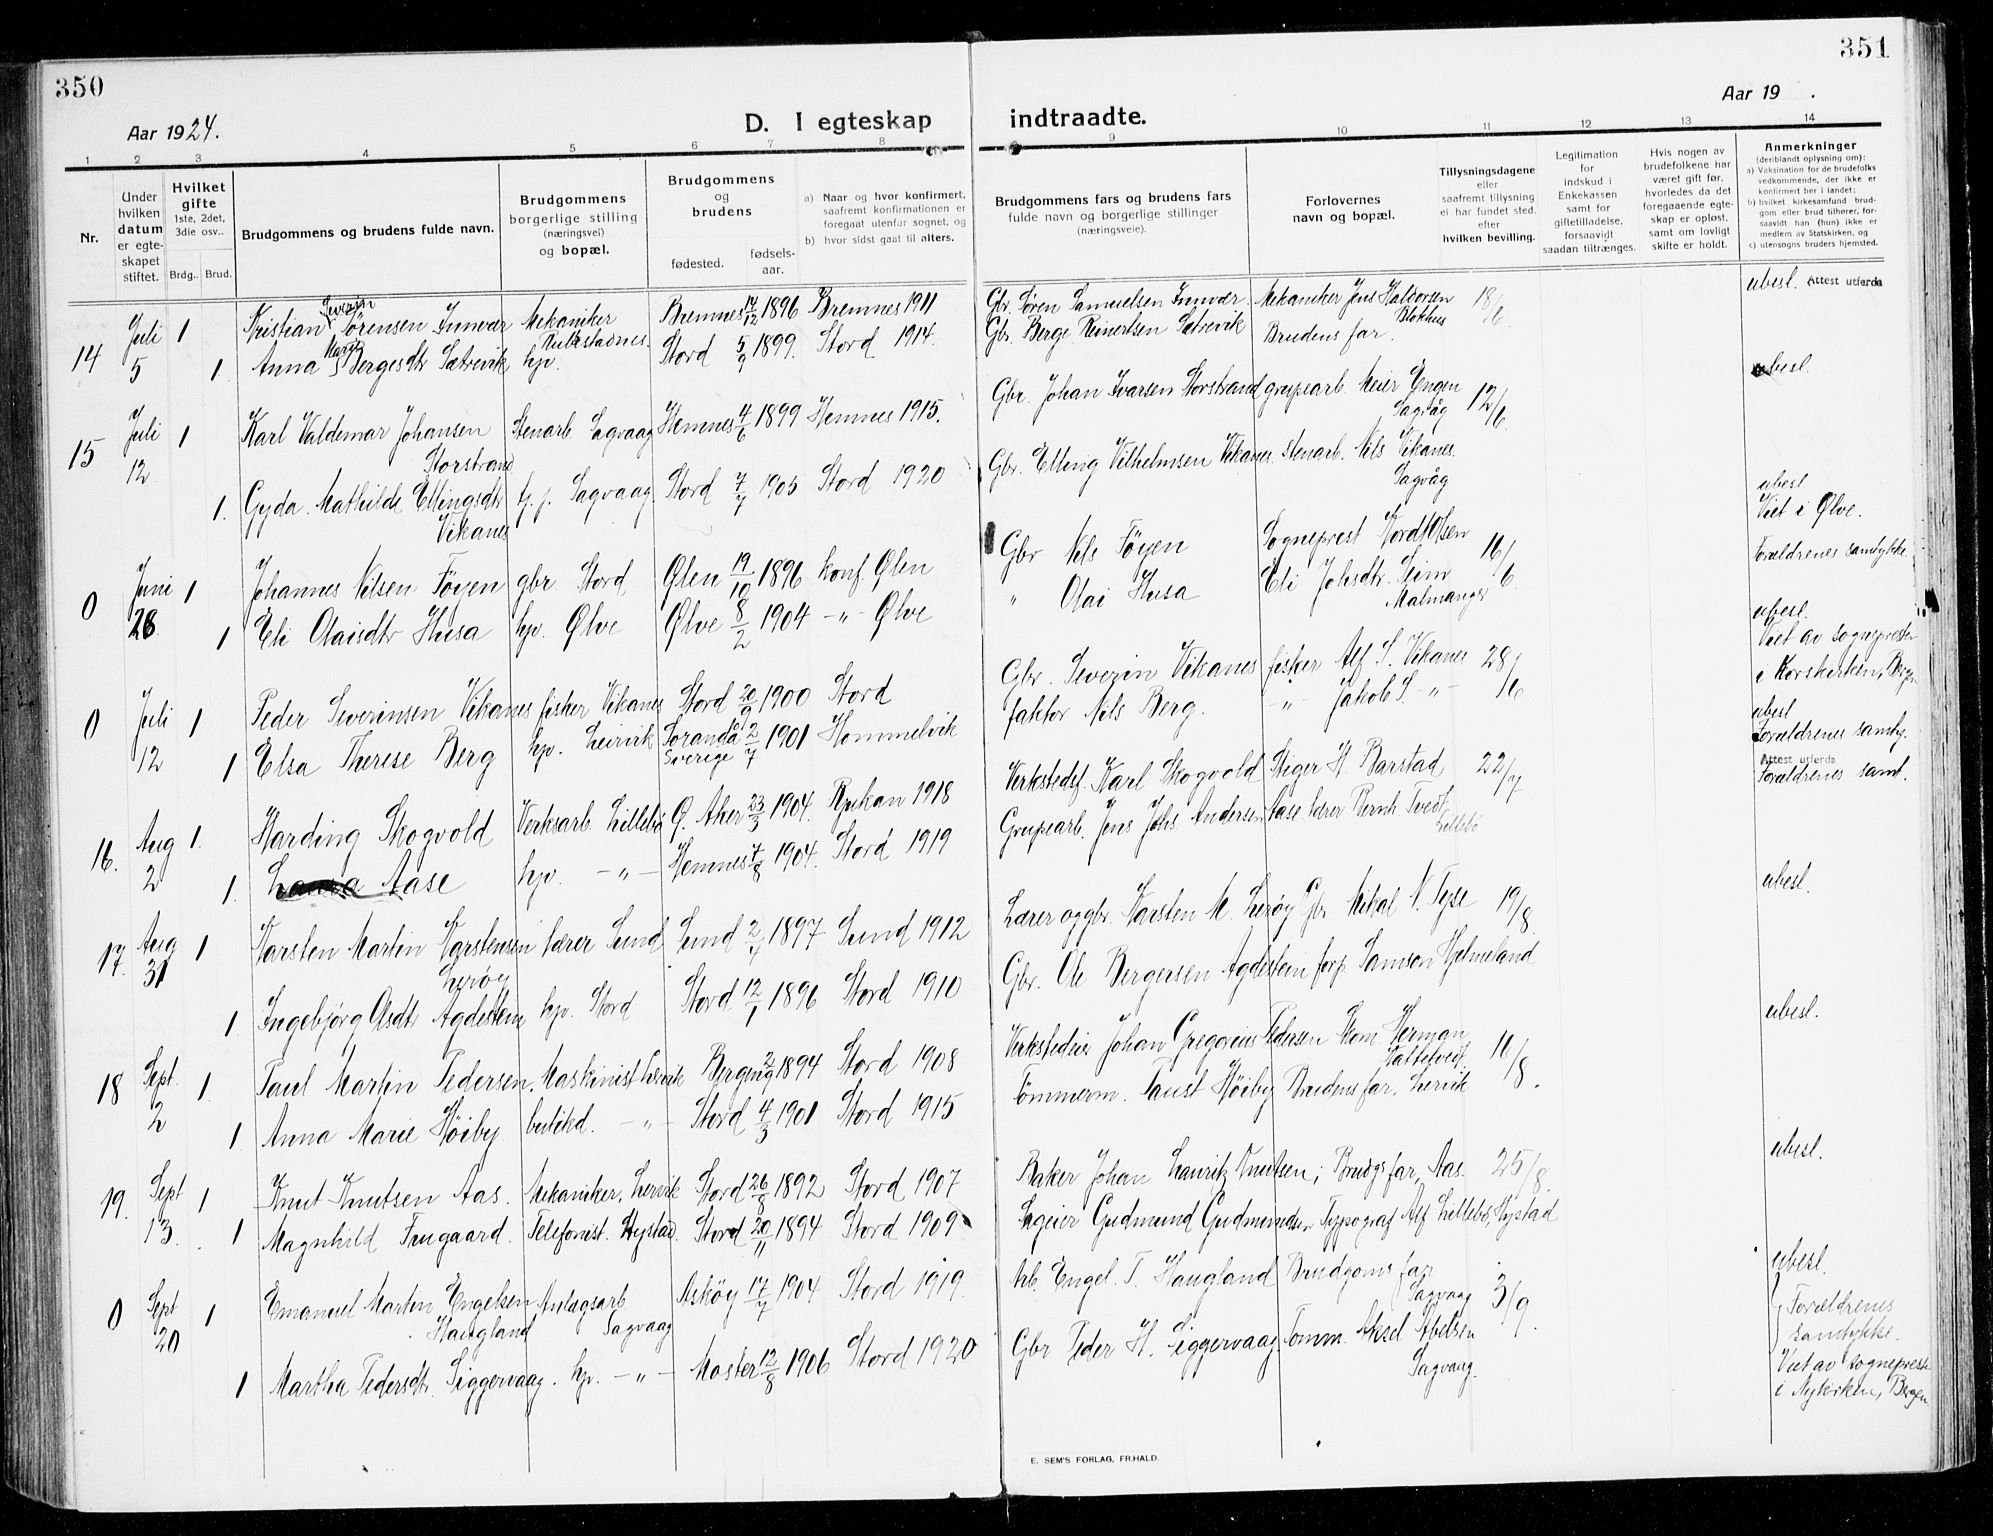 350
351
Aar 1924.
Aar 19 .
D. I egteskap indtraadte.
1 2 3 4 5 6 7 8 9 10 11 12 13 14
Nr.
Under hvilken datum er egteskapet stiftet.
Hvilket gifte
1ste, 2det, 3die osv..
Brdg.. Brud.
Brudgommens og brudens fulde navn.
Brudgommens borgerlige stilling (næringsvei) og bopæl.
Brudgommens og brudens
fødested.
fødselsaar.
a) Naar og hvor konfirmert, saafremt konfirmationen er foregaat utenfor sognet, og
b) hvor sidst gaat til alters.
Brudgommens fars og brudens fars fulde navn og borgerlige stillinger (næringsveie).
Forlovernes navn og bopæl.
Tillysningsdagene eller saafremt tillysning ei har fundet sted. efter hvilken bevilling.
Legitimation for indskud i Enkekassen samt for giftetilladelse, forsaavidt saadan tiltrænges.
Hvis nogen av brudefolkene har været gift før, hvorledes da det foregaaende egteskap er opløst, samt om lovligt skifte er holdt.
Anmerkninger (deriblandt oplysning om):
a) Vaksination for de brudefolks vedkommende, der ikke er konfirmert her i landet;
b) hvilket kirkesamfund brudgom eller brud tilhører, forsaavidt han (hun) ikke er medlem av Statskirken, og
c) utensogns bruders hjemsted.
14 Juli 5 1 Kristian Severin Sørensen Innvær Mekaniker Bremnes 17/12 1896 Bremnes 1911 Gbr. Søren Samuelsen Innvær Mekaniker Jens Haldorsen Blokhus 18/6 ubesl. Attest utferda
1 Anna Marie Bergesdtr Sætrevik hp. Stord 5/9 1899. Stord 1914. Gbr. Berge Reinertsen Sætrevik Brudens far.
15 Juli 12. 1 Karl Valdemar Johansen Storstrand Stenarb. Sagvaag Hemnes 4/6 1899 Hemnes 1915. Gbr. Johan Ivarsen Storstrand grupearb. Meier Engen Sagvåg 12/6. ubesl.
1. Gyda Mathilde Ellingsdtr Vikanes Sagvaag. Stord 7/7 1905 Stord 1920 Gbr. Elling Vilhelmsen Vikanes. Stenarb. Nils Vikanes. Sagvåg
0 Juni 28 1 Johannes Nilsen Føyen gbr Stord Ølen 19/10 1896 konf. Ølen Gbr Nils Føyen Sogneprest Nordt Olsen 16/6 ubesl Viet i Ølve. Forældrenes samtykke.
1 Eli Olaisdtr Husa hp. Ølve Ølve 8/2 1904 -"- Ølve " Olai Husa Eli Johsdtr. Seim Malmanger
0 Juli 12 1 Peder Severinsen Vikanes fisker Vikanes Stord 20/9 1900 Stord Gbr. Severin Vikanes fisker Alf S. Vikanes 28/6 ubesl. Viet av sognepresten i Korskirken, Bergen
1 Elsa Therese Berg hp. Leirvik Sverige 2/7 1901 Hommelvik faktor Nils Berg. -"- Jakob S. -"- ubesl Forældrenes samty.
16. Aug 2 1. Harding Skogvold Verksarb. Lillebø Ø. Aker 23/3 1904. Rjukan 1918 Verkstedsf. Karl Skogvold Stiger H. Barstad 22/7 Attest utferda Forældrenes samt.
1. Aase hp. -"- Hemnes 7/8 1904. Stord 1919 Grupearb. Jens Johs. Andersen Aase. Lærer Bernh. Tvedt Lillebø
17. Aug 31 1 Karsten Martin Karstensen Lerøy lærer Sund Sund 2/4 1897 Sund 1912 Lærer og gbr. Karsten M. Lerøy Gbr. Mikal N. Tyse 19/8. ubesl.
1. Ingebjørg Olsdtr Agdestein hp. Stord Stord 12/1 1896 Stord 1910 Gbr. Ole Bergersen Agdestein forp. Samson Hjelmeland
18 Sept. 2 1. Paul Martin Pedersen. Maskinist Lervik Bergen 2/9 1894 Stord 1908 Verkstedeier Johan Gregorius Pedersen Skom. Herman Saltetvedt. 11/8. ubesl.
1 Anna Marie Høiby butikd. -"- Stord 4/3 1901 Stord 1915 Tømmerm. Faust Høiby Brudens far. Lervik
19. Sept 13. 1 Knut Knutsen Aas. Mekaniker. Lervik Stord 26/8 1892 Stord 1907 Baker Johan Lauritz Knutsen; Brudgs far, Aas. 25/8 ubesl.
1 Magnhild Frugaard. Telefonist. Hystad. Stord 20/11 1894 Stord 1909 Sageier Gudmund Gudmundsen Typograf Alf Lillebø, Hystad
0 Sept 20 1 Emanuel Martin Engelsen Haugland Anlægsarb. Sagvaag Askøy 17/7 1904 Stord 1919. Arb. Engel. T. Haugland Brudgoms far Sagvaag 3/9. ubesl. Forældrenes samtykke.
1 Martha Pedersdtr. Siggervaag. hp. -"- Moster 12/8 1906 Stord 1920 Gbr Peder H. Siggervaag. Tømm. Aksel Abelsen Sagvaag. Viet av sogneprest i Nykirken, Bergen
E. SEM'S FORLAG, FR.HALD.